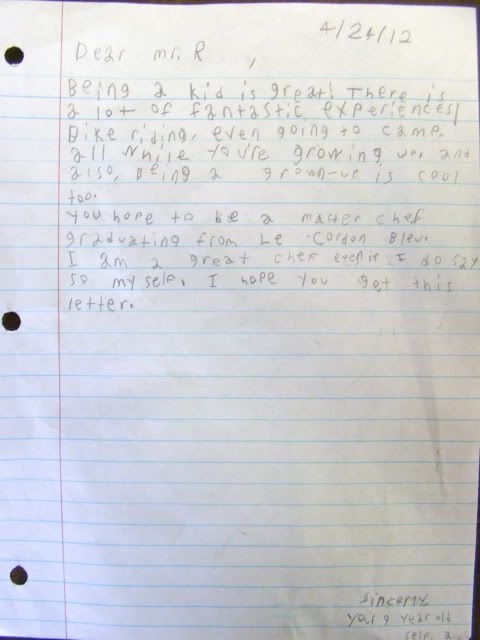 4/24/12
Dear mr. R ,
Being a kid is great! There is
a lot of fantastic experiences!
Bike riding, even going to camp,
all while you're growing up, and
also, being a grown-up is cool
too.
you hope to be a master chef
graduating from Le Cordon Bleu.
I am a great chef I do say
so my self. I hope you get this
letter.
sincerly
your 9 year old
self.